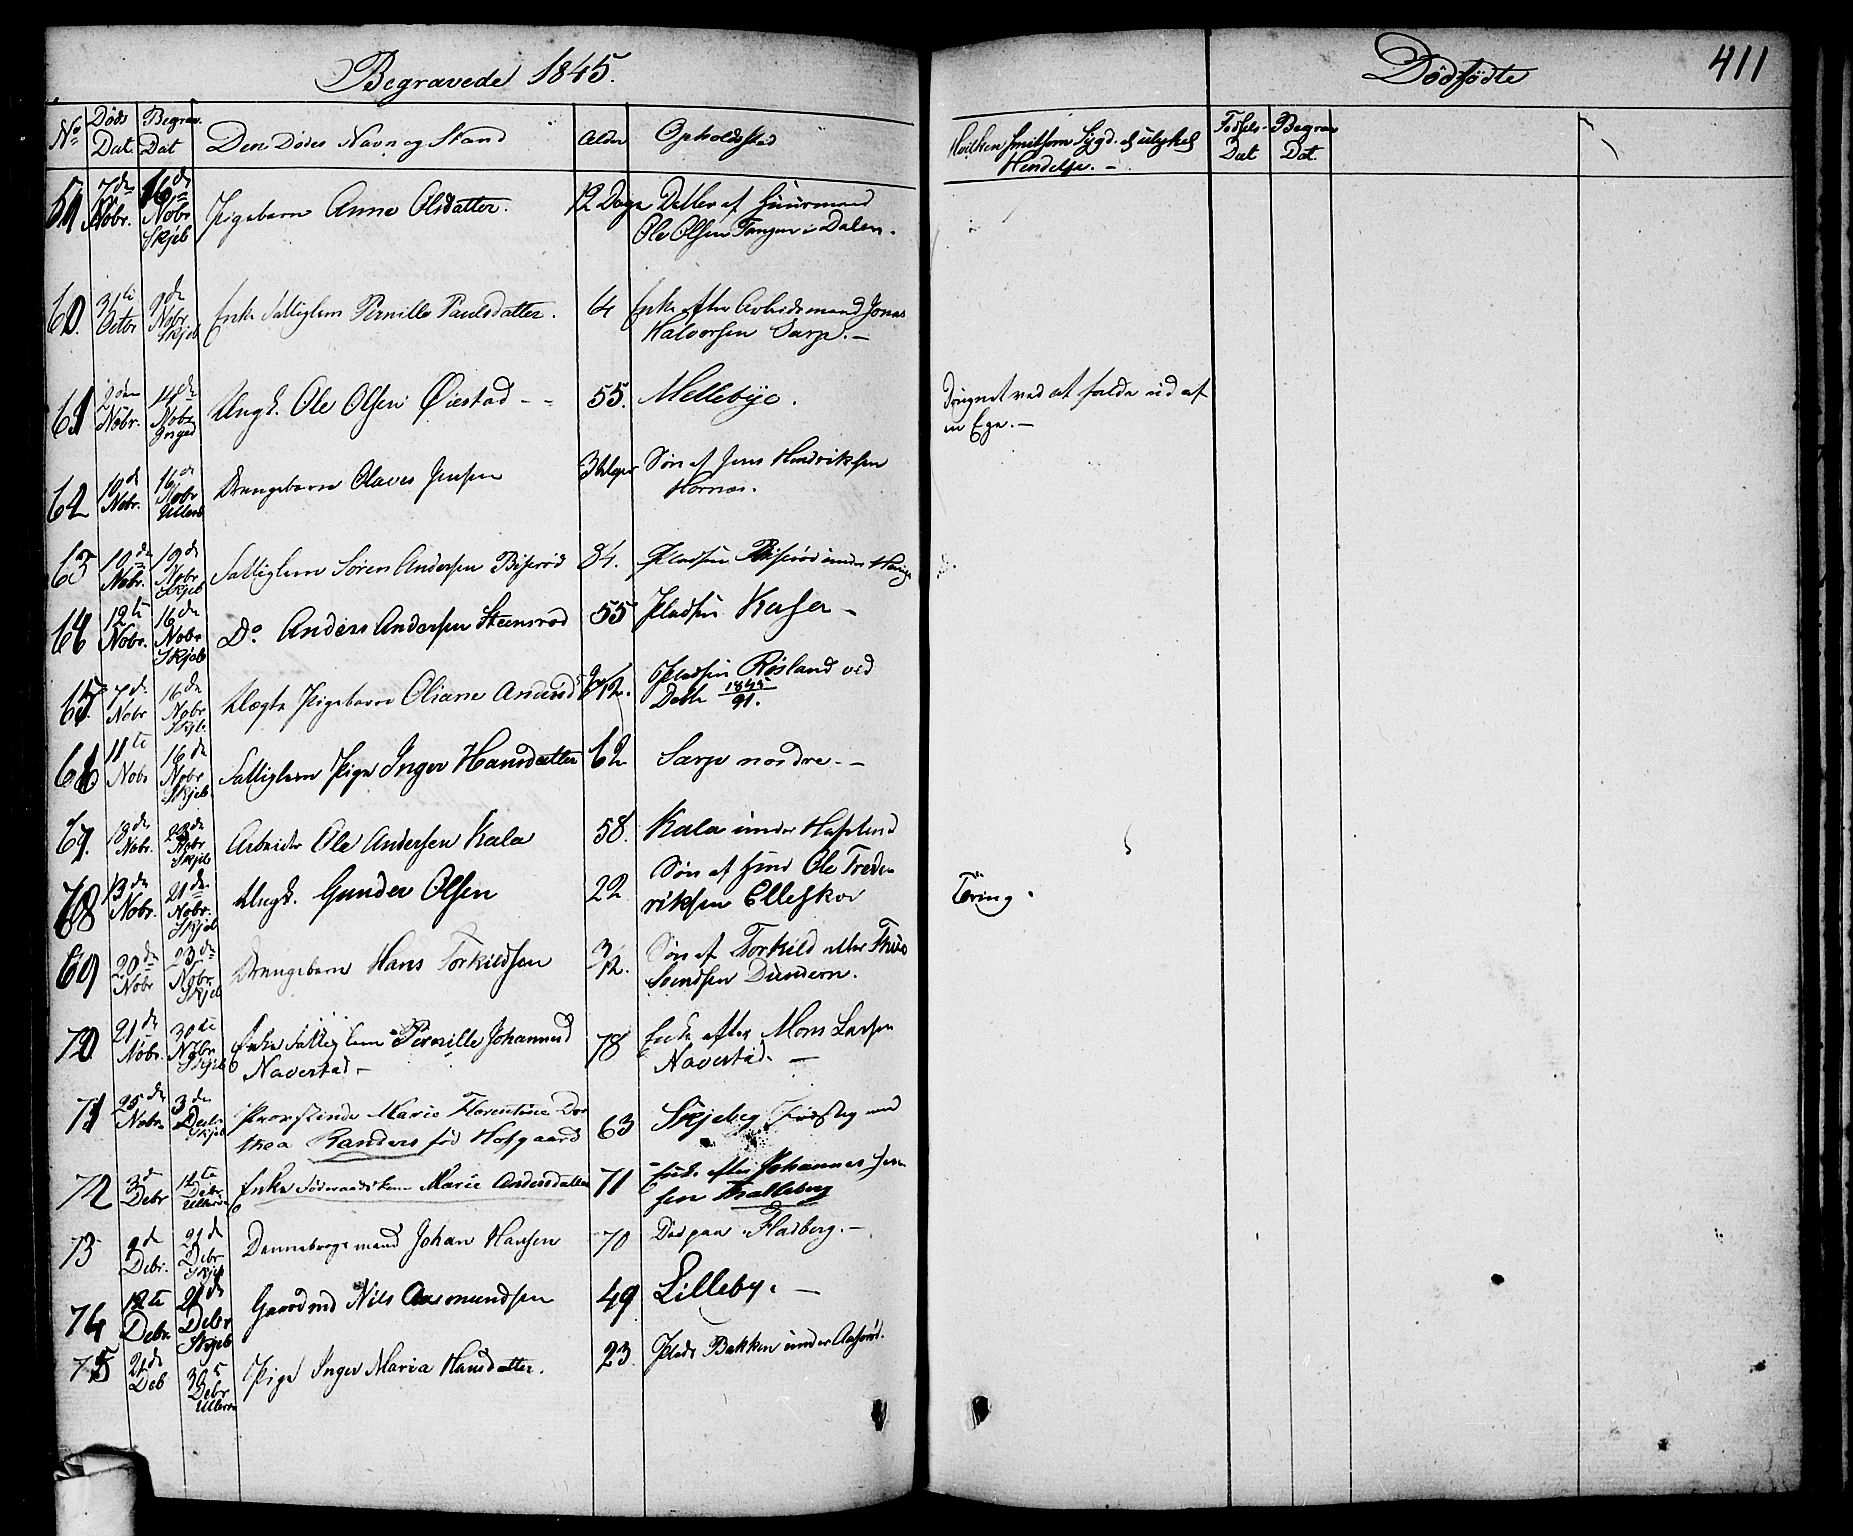 Begravede 1845.
Dødfødte 411
No Døds Dat. Begrav. Dat Den Dødes Navn og Stand Alder Opholdssted
Hvilken smitsom Sygd. el ulykkel Hendelse. -
Fødsels- Dat Begrav Dat.
7de Nobr. 16de Nobr Skjeb Pigebarn Anne Olsdatter. 12 Dage Datter af Huusmand
Ole Olsen Tangen i Dalen.
60. 31te Octbr 9de Nobr Skjeb Enke Fattiglem Pernille Paulsdatter. 64 Enke efter Arbeidsmand Jonas
Halvorsen Sarp. -
61 2den Nobr. Nobr Ungk. Ole Olsen Øiestad - - 55. Mellebye. Druknet ved at falde ud af
en Ege. -
62 10de Nobr. 16de Nobr Ullerø Drengebarn Olaves Jensen 3 Uger Søn af Jens Hendriksen
Hornæs.
63 10de Nobr. 19de Nobr Skjeb Fattiglem Søren Andersen 84. Pladsen under
64 12te Nobr. 16de Nobr Skjeb Do Anders Andersen Steensrød 55 Pladsen Kasa -
65. 7de Nobr 16de Nobr Skjb. Uægte Pigebarn Oliane Andersd /12. Pladsen Røsland ved
Dette 1845/91.
66 11te Nobr 16de Nobr Skjeb. Fattiglem Pige Inger Hansdatter 62 Sarp nordre. -
67. 13de Nobr. 23de Nobr Skjeb Arbeider Ole Andersen Kala 58. Kala under Hafslund
68 13de Nobr. 21de Nobr. Skjeb Ungk. Gunder Olsen 22 Søn af Ole Frede-
riksen Elleskov Tæring.
69 20de Nobr 23de Nobr Skjeb Drengebarn Hans Torkildsen 3/12. Søn af Torkild eller
Svendsen Dundern.
70 21de Nobr. 30te Nobr Skjeb Enke Fattiglem Pernille Johannesd 78 Enke efter Mons Larsen
Navestad - Navestad. -
71 25de Nobr 3de Decbr Skjeb Provstinde Marie Florentine Dor
thea Randers fød Hofgaard 63 Skjeberg Præstegaard
72 3d Debr Debr Ullerø Enke Føderaadskone Marie Andersdatter 71 Enke efter Johannes Jen
sen
73 9d Debr. 21de Debr Skjeb Dannebrogsmand Johan Hansen 70 Død paa Fladberg. -
74 12te Debr 21de Debr Skjeb Gaardmd Nils Aasmundsen 49 Lilleby. -
75 21de Deb Debr Ullerø Pige Inger Maria Hansdatter. 23. Plads Bakken under